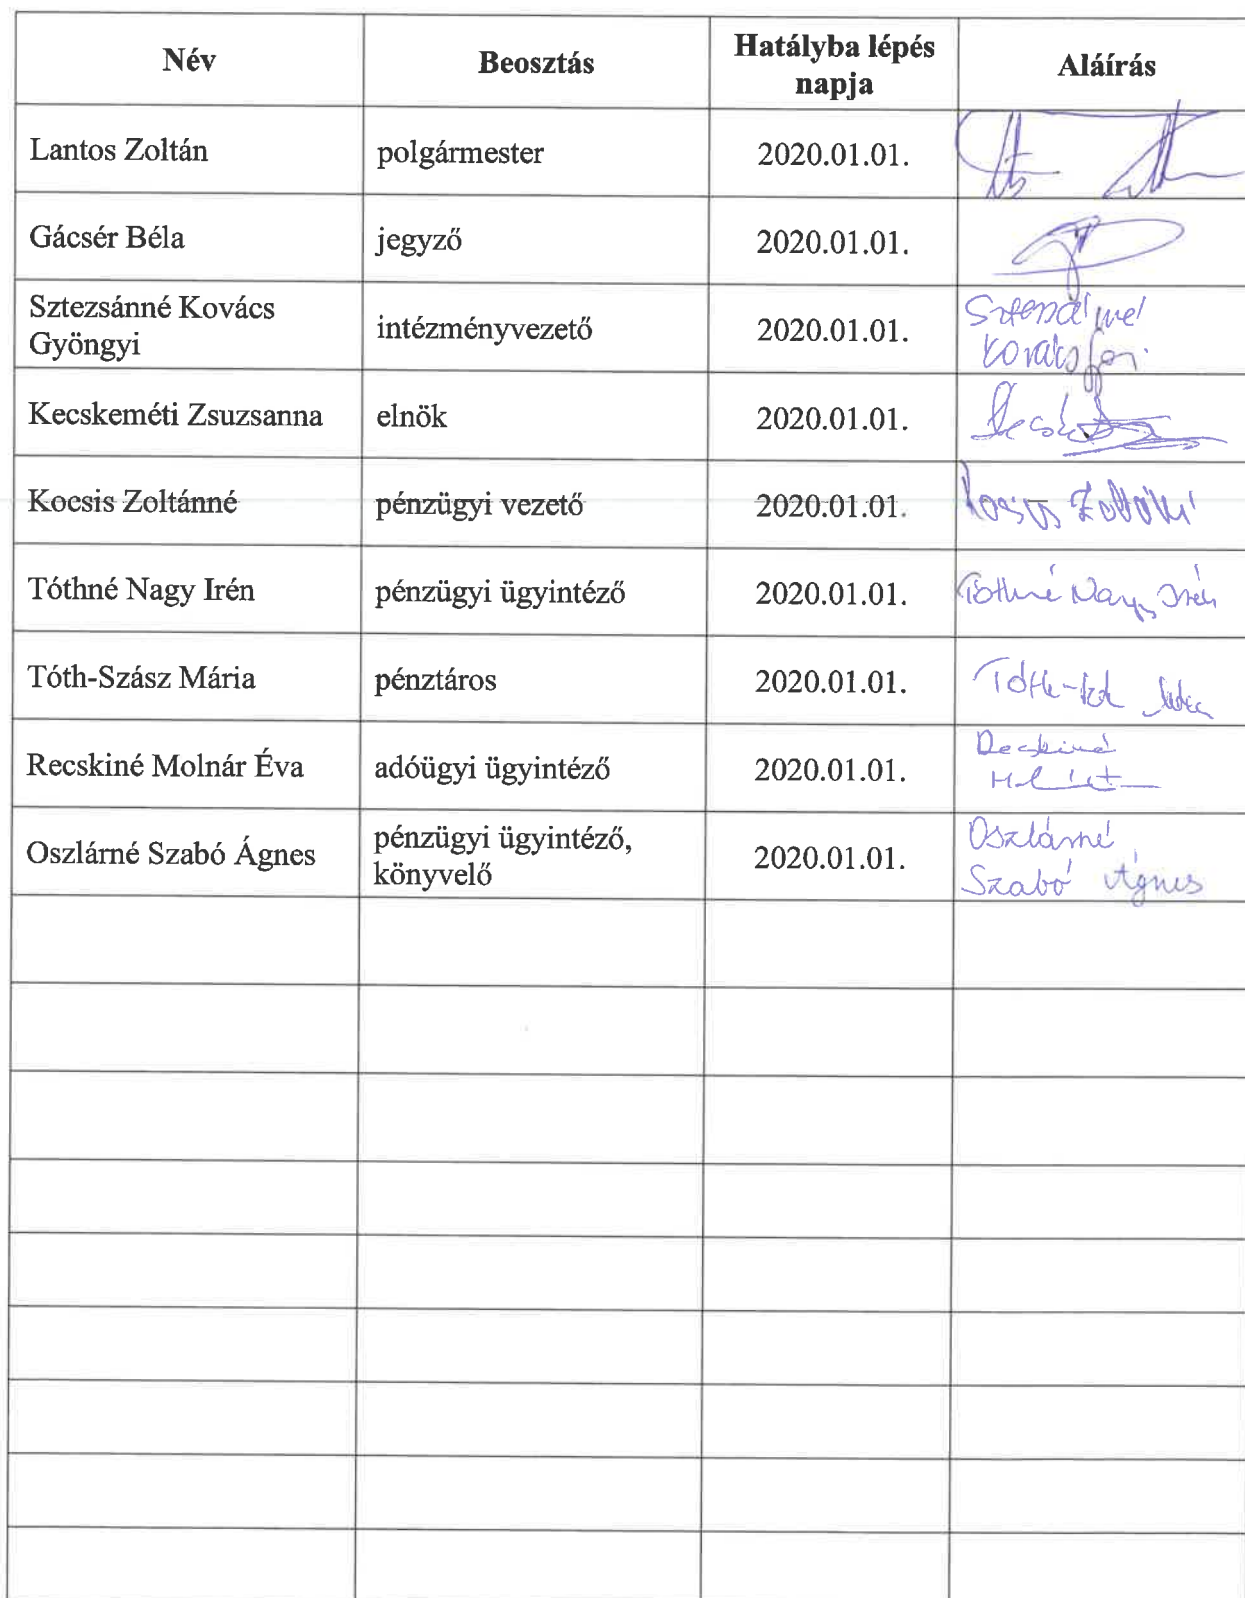 Név Beosztás Hatályba lépés napja Aláírás
Lantos Zoltán polgármester 2020.01.01.
Gácsér Béla jegyző 2020.01.01.
Sztezsánné Kovács
Gyöngyi intézményvezető 2020.01.01.
Kecskeméti Zsuzsanna elnök 2020.01.01.
Kocsis Zoltánné pénzügyi vezető 2020.01.01.
Tóthné Nagy Irén pénzügyi ügyintéző 2020.01.01. Tóthné Nagy Irén
Tóth-Szász Mária pénztáros 2020.01.01.
Recskiné Molnár Éva adóügyi ügyintéző 2020.01.01.
Oszlárné Szabó Ágnes pénzügyi ügyintéző,
könyvelő 2020.01.01. Oszlárné
Szabó Ágnes